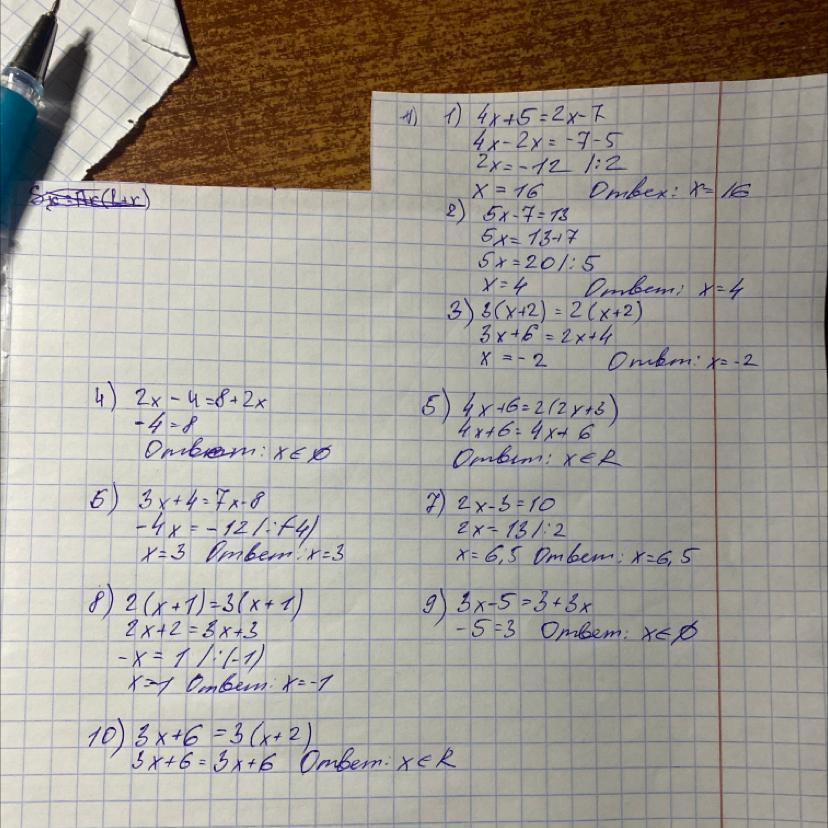 1) 4x+5=2x-7
4x-2x=-7-5
2x=-12 /:2
x=16 Ответ: x=16
2) 5x-7=13
5x=13+7
5x=20/:5
x=4 Ответ: x=4
3) 3(x+2)=2(x+2)
3x+6=2x+4
x=-2 Ответ: x=-2
4) 2x-4=8+2x
-4=8
Ответ: x∈∅
5) 4x+6=2(2x+3)
4x+6=4x+6
Ответ: x∈R
6) 3x+4=7x-8
-4x=-12/:(-4)
x=3 Ответ: x=3
7) 2x-3=10
2x=13/:2
x=6,5 Ответ: x=6,5
8) 2(x+1)=3(x+1)
2x+2=3x+3
-x=1 /:(-1)
x=-1 Ответ: x=-1
9) 3x-5=3+3x
-5=3 Ответ: x∈∅
10) 3x+6=3(x+2)
3x+6=3x+6 Ответ: x∈R